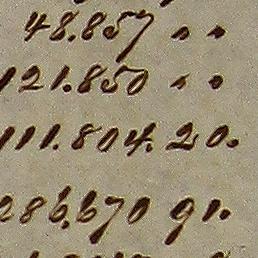 48.857 " "
121.850 " "
111.804. 20.
286.670 91.